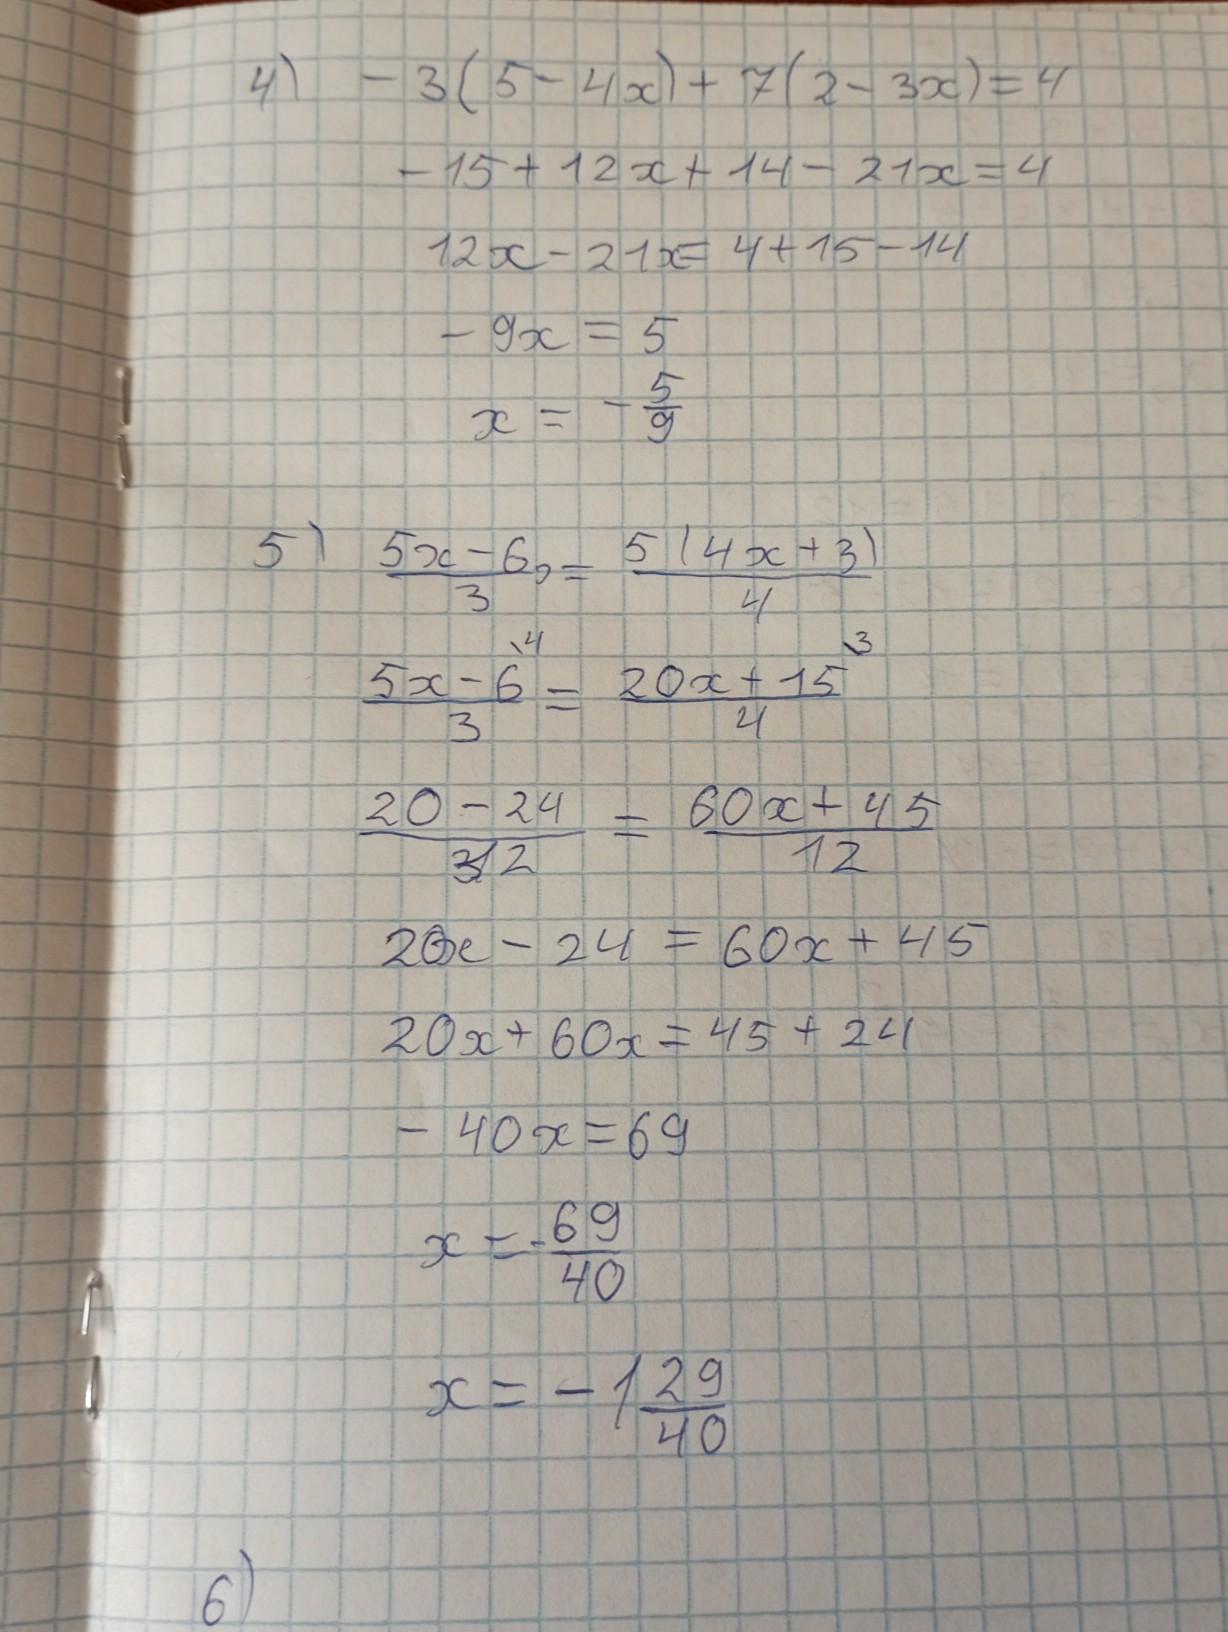 4) -3(5-4x)+7(2-3x)=4
-15+12x+14-21x=4
12x-21x=4+15-14
-9x=5
x=-5/9
5) (5x-6)/3 = 5(4x+3)/4
(5x-6)/3 \4 = (20x+15)/4 \3
(20-24)/12 = (60x+45)/12
20x-24=60x+45
20x+60x=45+24
-40x=69
x=-69/40
x=-1 29/40
6)